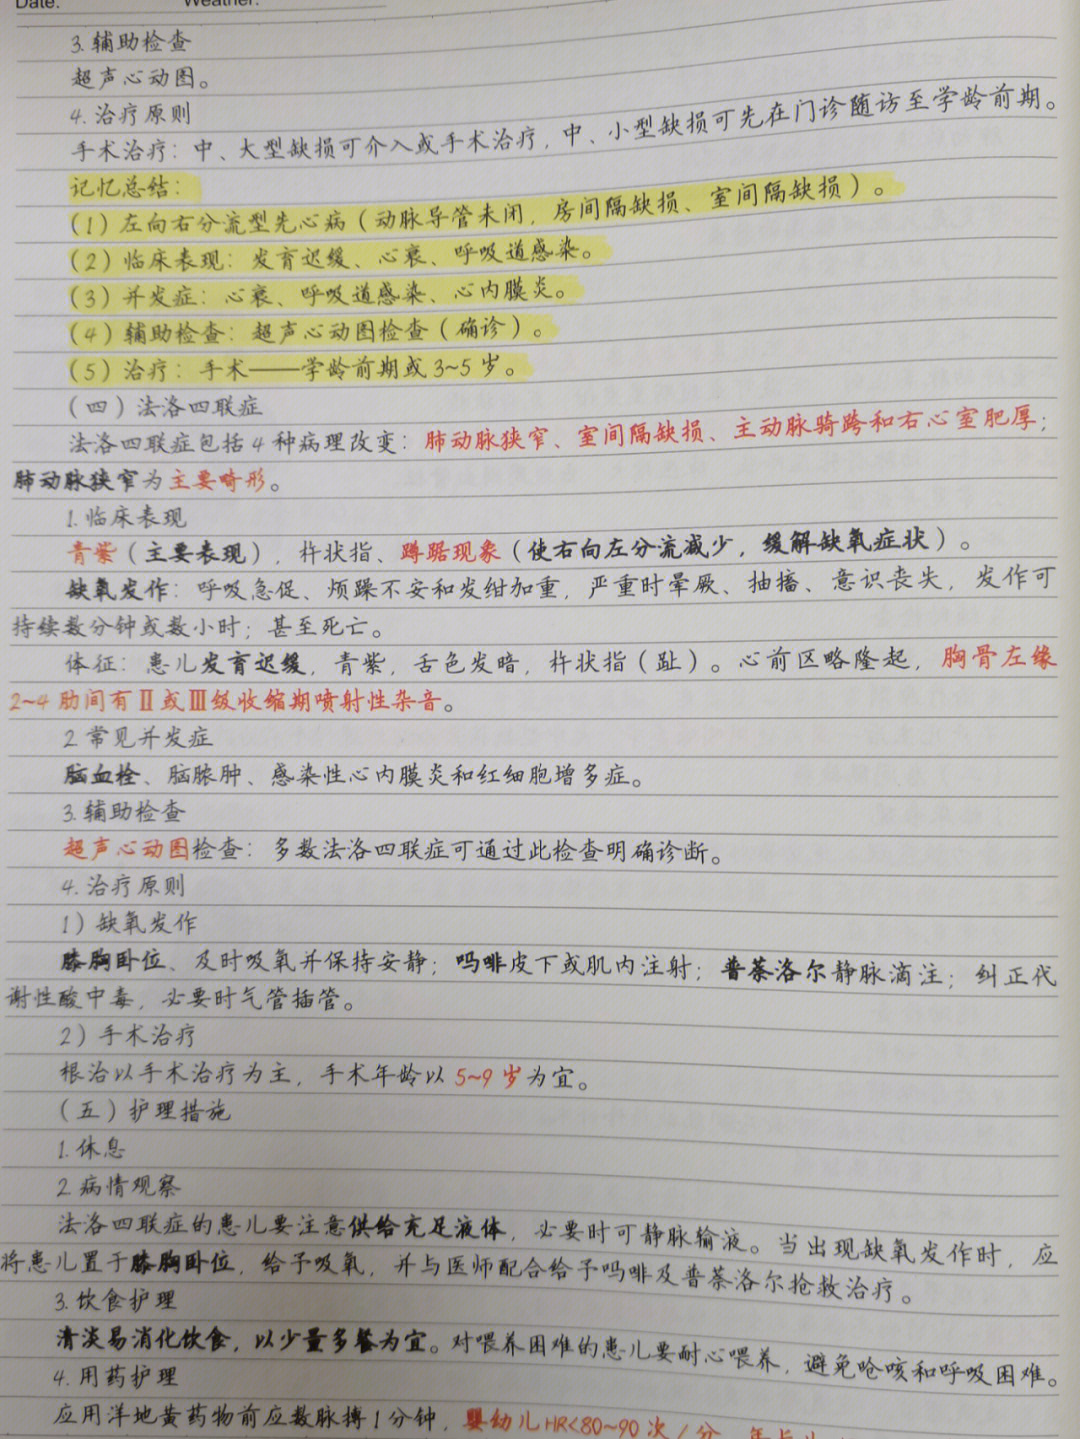 Date: Weather:
3.辅助检查
超声心动图。
4.治疗原则
手术治疗：中、大型缺损可介入或手术治疗，中、小型缺损可先在门诊随访至学龄前期。
记忆总结：
(1)左向右分流型先心病(动脉导管未闭，房间隔缺损、室间隔缺损)。
(2)临床表现：发育迟缓、心衰、呼吸道感染。
(3)并发症：心衰、呼吸道感染、心内膜炎。
(4)辅助检查：超声心动图检查(确诊)。
(5)治疗：手术——学龄前期或3~5岁。
(四)法洛四联症
法洛四联症包括4种病理改变：肺动脉狭窄、室间隔缺损、主动脉骑跨和右心室肥厚；
肺动脉狭窄为主要畸形。
1.临床表现
青紫(主要表现)，杵状指、蹲踞现象(使右向左分流减少，缓解缺氧症状)。
缺氧发作：呼吸急促、烦躁不安和发绀加重，严重时晕厥、抽搐、意识丧失，发作可
持续数分钟或数小时；甚至死亡。
体征：患儿发育迟缓，青紫，舌色发暗，杵状指(趾)。心前区略隆起，胸骨左缘
2~4肋间有Ⅱ或Ⅲ级收缩期喷射性杂音。
2.常见并发症
脑血栓、脑脓肿、感染性心内膜炎和红细胞增多症。
3.辅助检查
超声心动图检查：多数法洛四联症可通过此检查明确诊断。
4.治疗原则
1)缺氧发作
膝胸卧位、及时吸氧并保持安静；吗啡皮下或肌内注射；普萘洛尔静脉滴注；纠正代
谢性酸中毒，必要时气管插管。
2)手术治疗
根治以手术治疗为主，手术年龄以5~9岁为宜。
(五)护理措施
1.休息
2.病情观察
法洛四联症的患儿要注意供给充足液体，必要时可静脉输液。当出现缺氧发作时，应
将患儿置于膝胸卧位，给予吸氧，并与医师配合给予吗啡及普萘洛尔抢救治疗。
3.饮食护理
清淡易消化饮食，以少量多餐为宜。对喂养困难的患儿要耐心喂养，避免呛咳和呼吸困难。
4.用药护理
应用洋地黄药物前应数脉搏1分钟，婴幼儿HR<80~90次/分